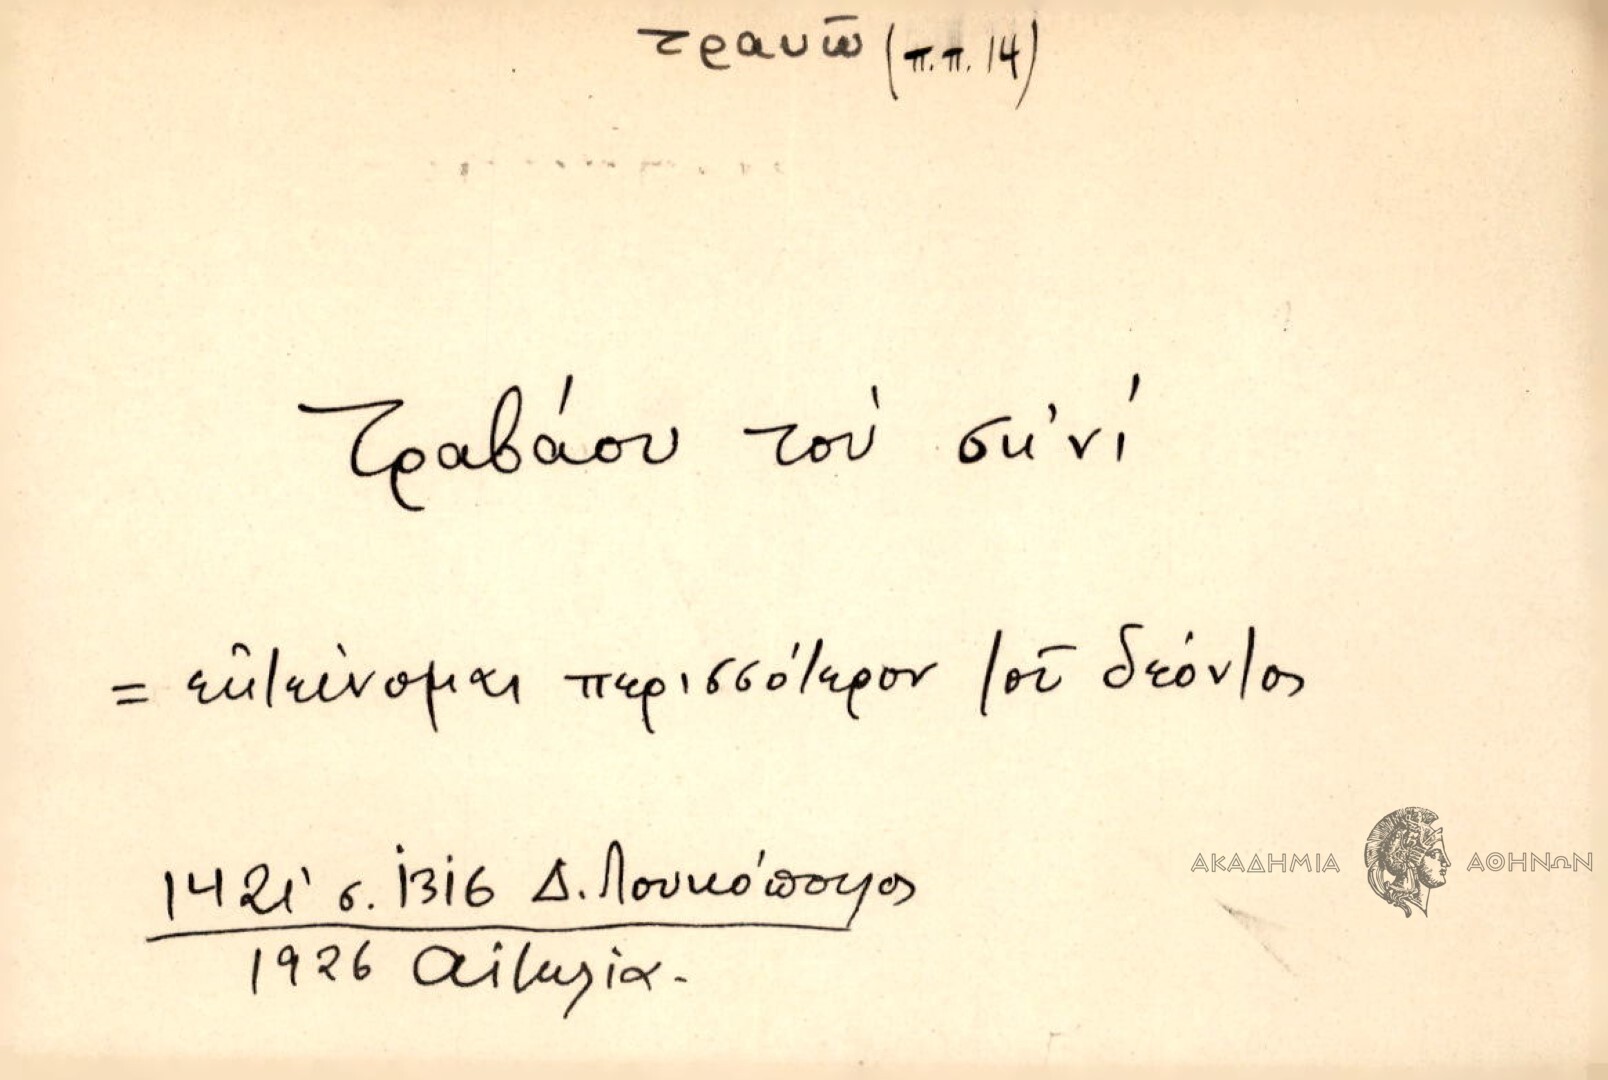 τραυῶ (π.π. 14)
Τραβάου τοὺ σκ'νί
= ἐκτείνομαι περισσότερον τοῦ δέοντος
1421' σ. 1316 Δ. Λουκόπουλος
1926 Αἰτωλία.
ΑΚΑΔΗΜΙΑ ΑΘΗΝΩΝ